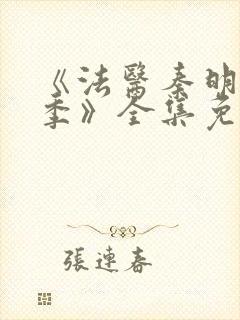 《法醫秦明
季》全集免
張連春